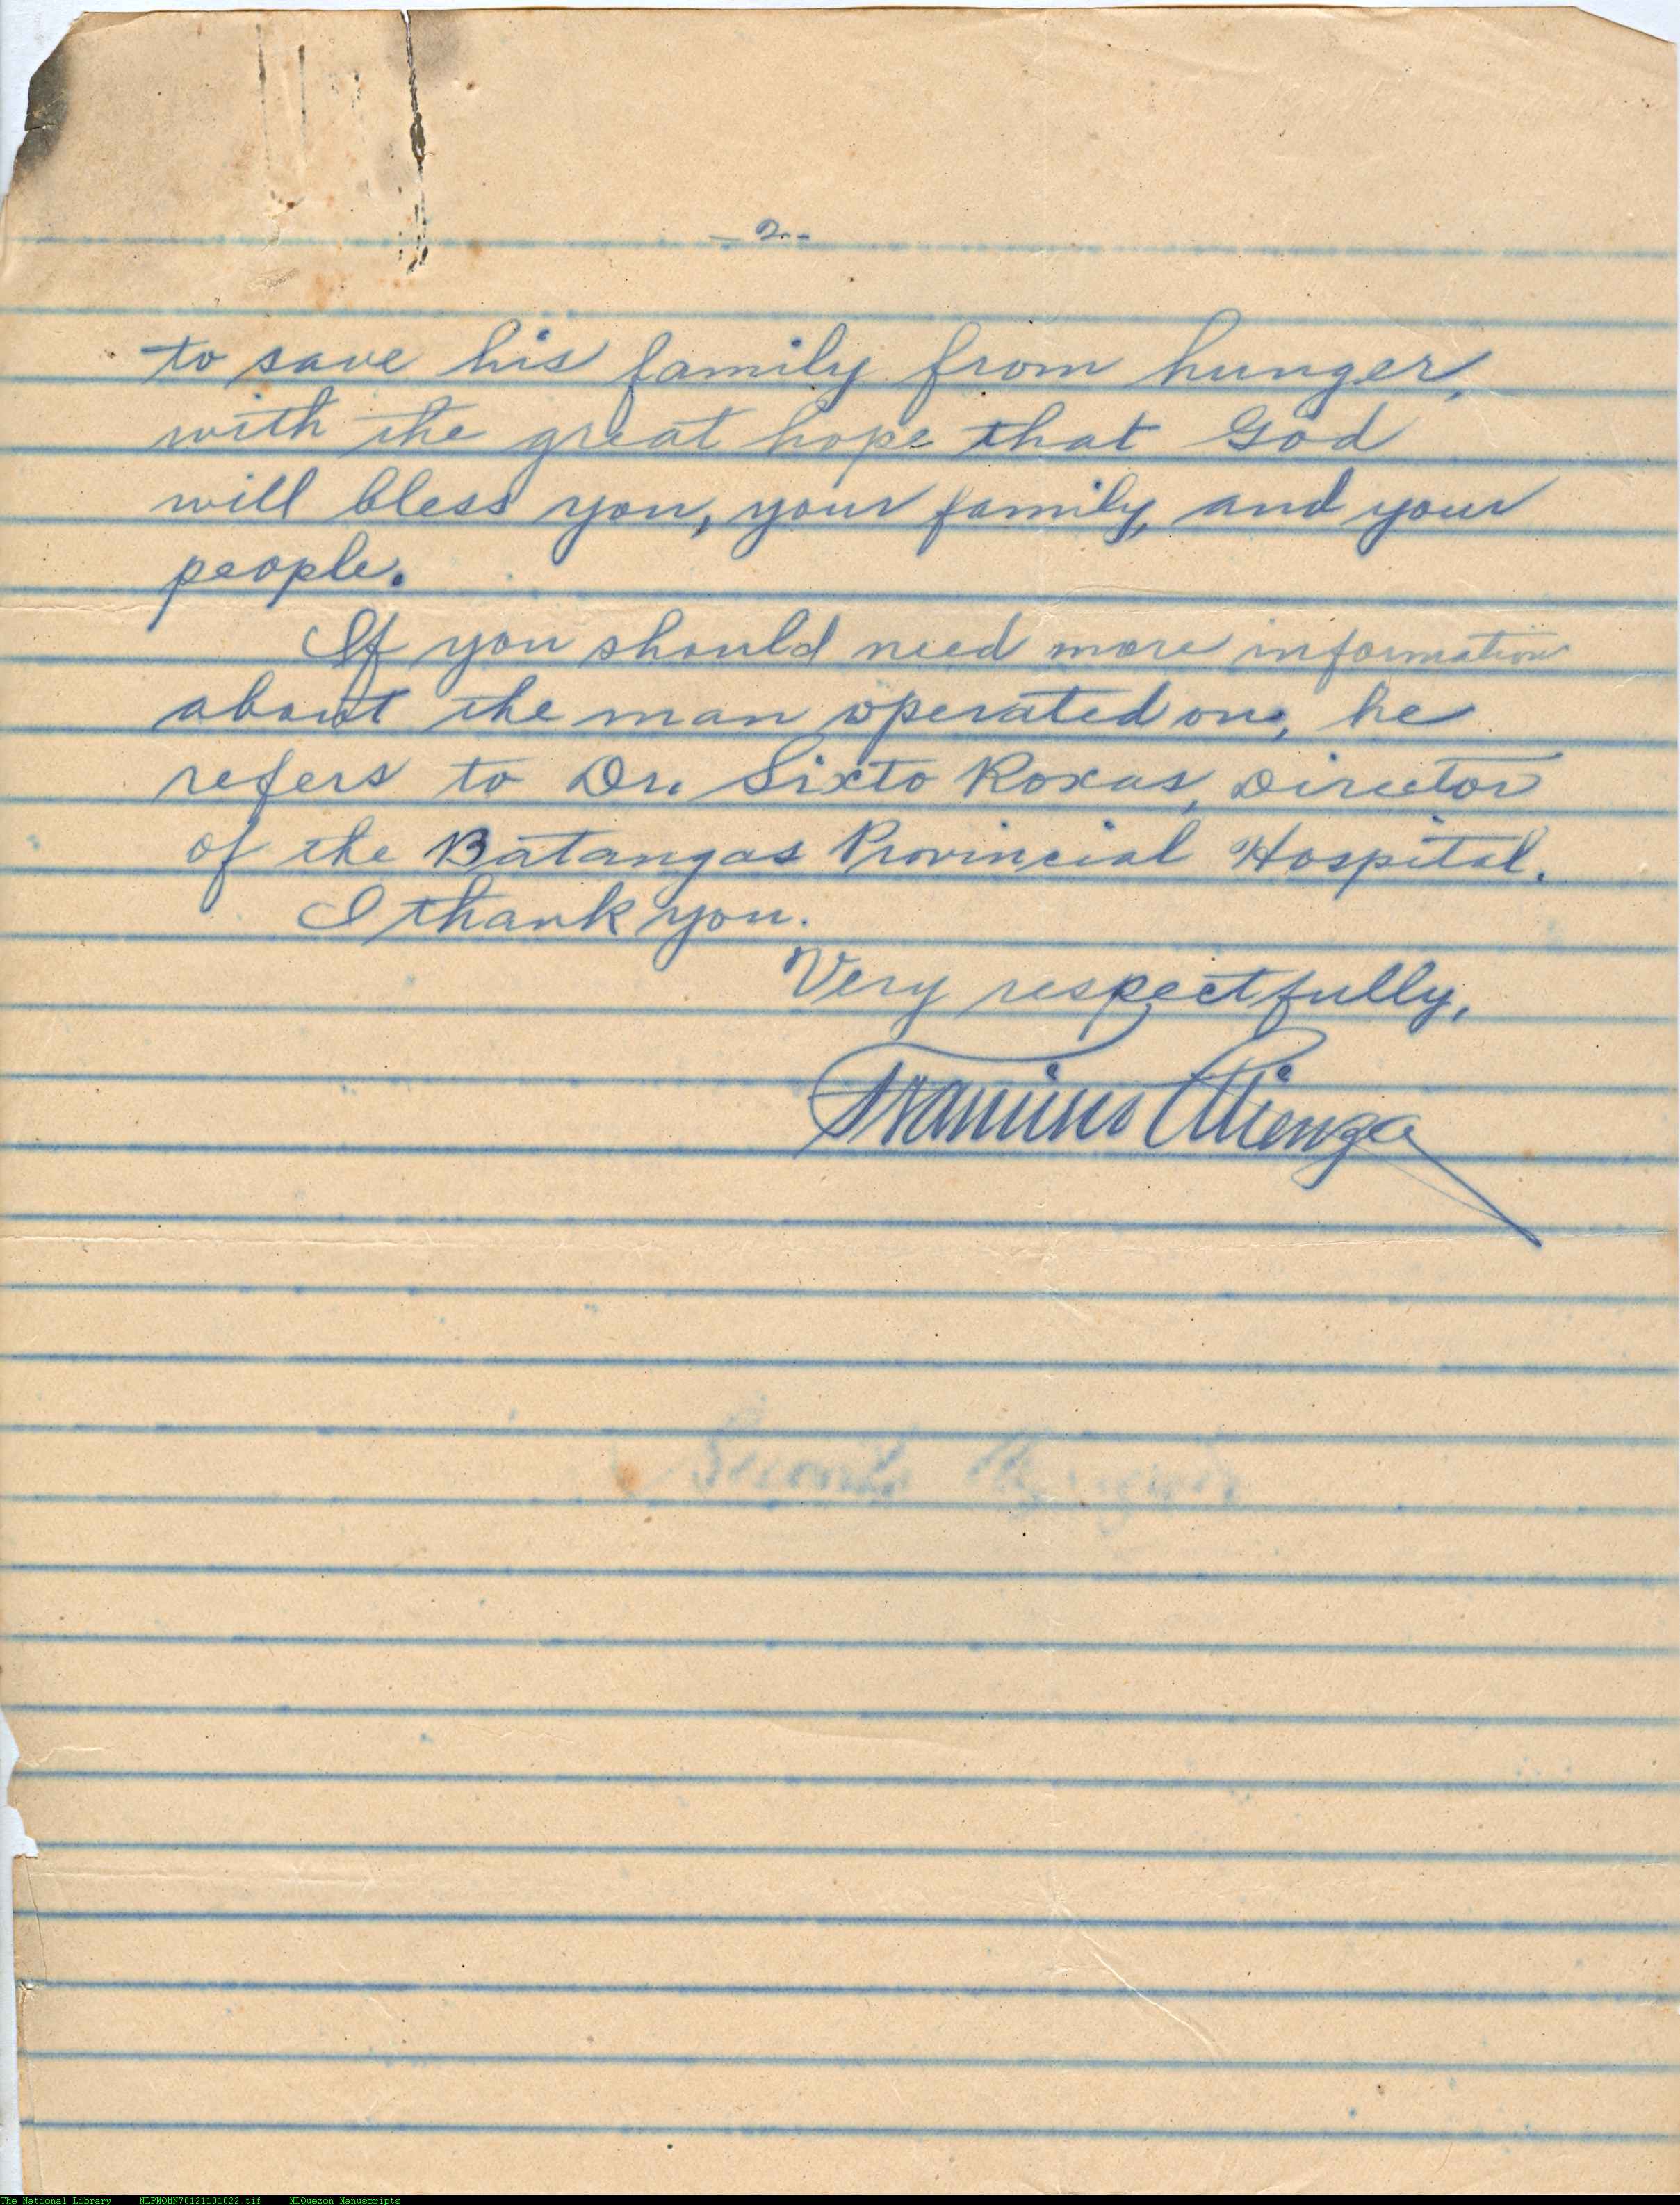 - 2. -
to save his family from hunger,
with the great hope that God
will bless you, your family, and your
people.
If you should need more information
about the man operated on, he
refers to Dr. Sixto Roxas, Director
of the Batangas Provincial Hospital.
I thank you.
Very respectfully,
Francisco Atienza
The National Library NLPMQMN70121101022.tif MLQuezon Manuscripts